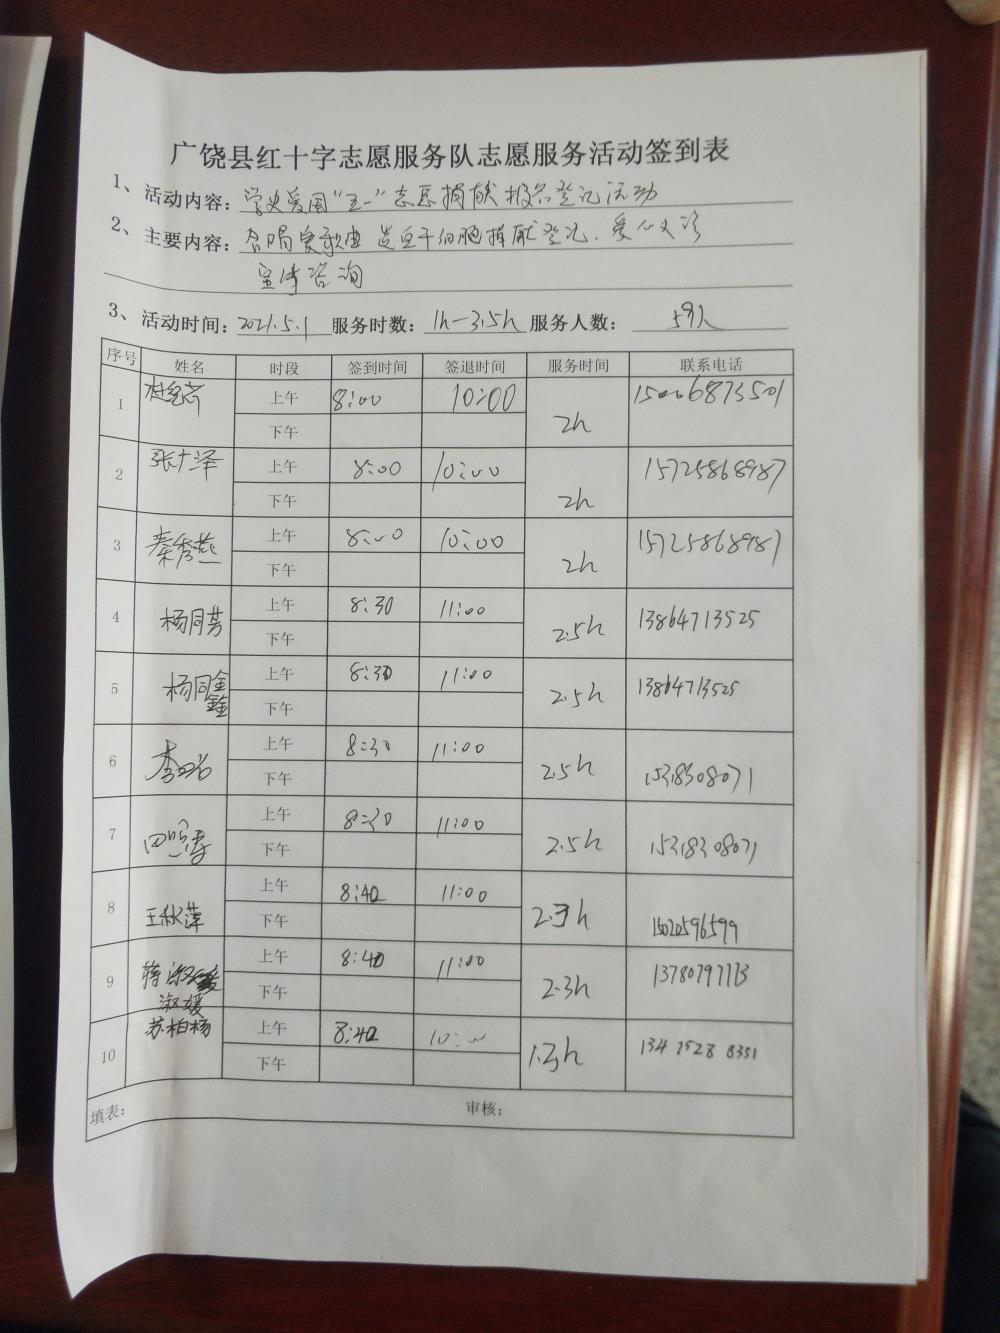 广饶县红十字志愿服务队志愿服务活动签到表
1、活动内容：学史爱国"五一"志愿捐献报名登记活动
2、主要内容：合唱爱国歌曲 造血干细胞捐献登记、爱心义诊
宣传咨询
3、活动时间：2021.5.1 服务时数：1h—3.5h 服务人数：59人
序号 姓名 时段 签到时间 签退时间 服务时间 联系电话
1 上午 8:00 10:00 2h 15006873501
下午
2 张广泽 上午 8:00 10:00 2h 15725868987
下午
3 秦秀燕 上午 8:00 10:00 2h 15725868987
下午
4 杨同芳 上午 8:30 11:00 2.5h 13864713525
下午
5 杨同鑫 上午 8:30 11:00 2.5h 13864713525
鑫
下午
6 上午 8:30 11:00 2.5h 15318308071
下午
7 上午 8:30 11:00 2.5h 15318308071
下午
8 王秋萍 上午 8:40 11:00 2.3h
下午
9 蒋淑 上午 8:40 11:00 2.3h 13780797713
淑媛
下午
10 苏柏杨 上午 8:40 10:00 1.3h 134 7528 8351
下午
填表： 审核：